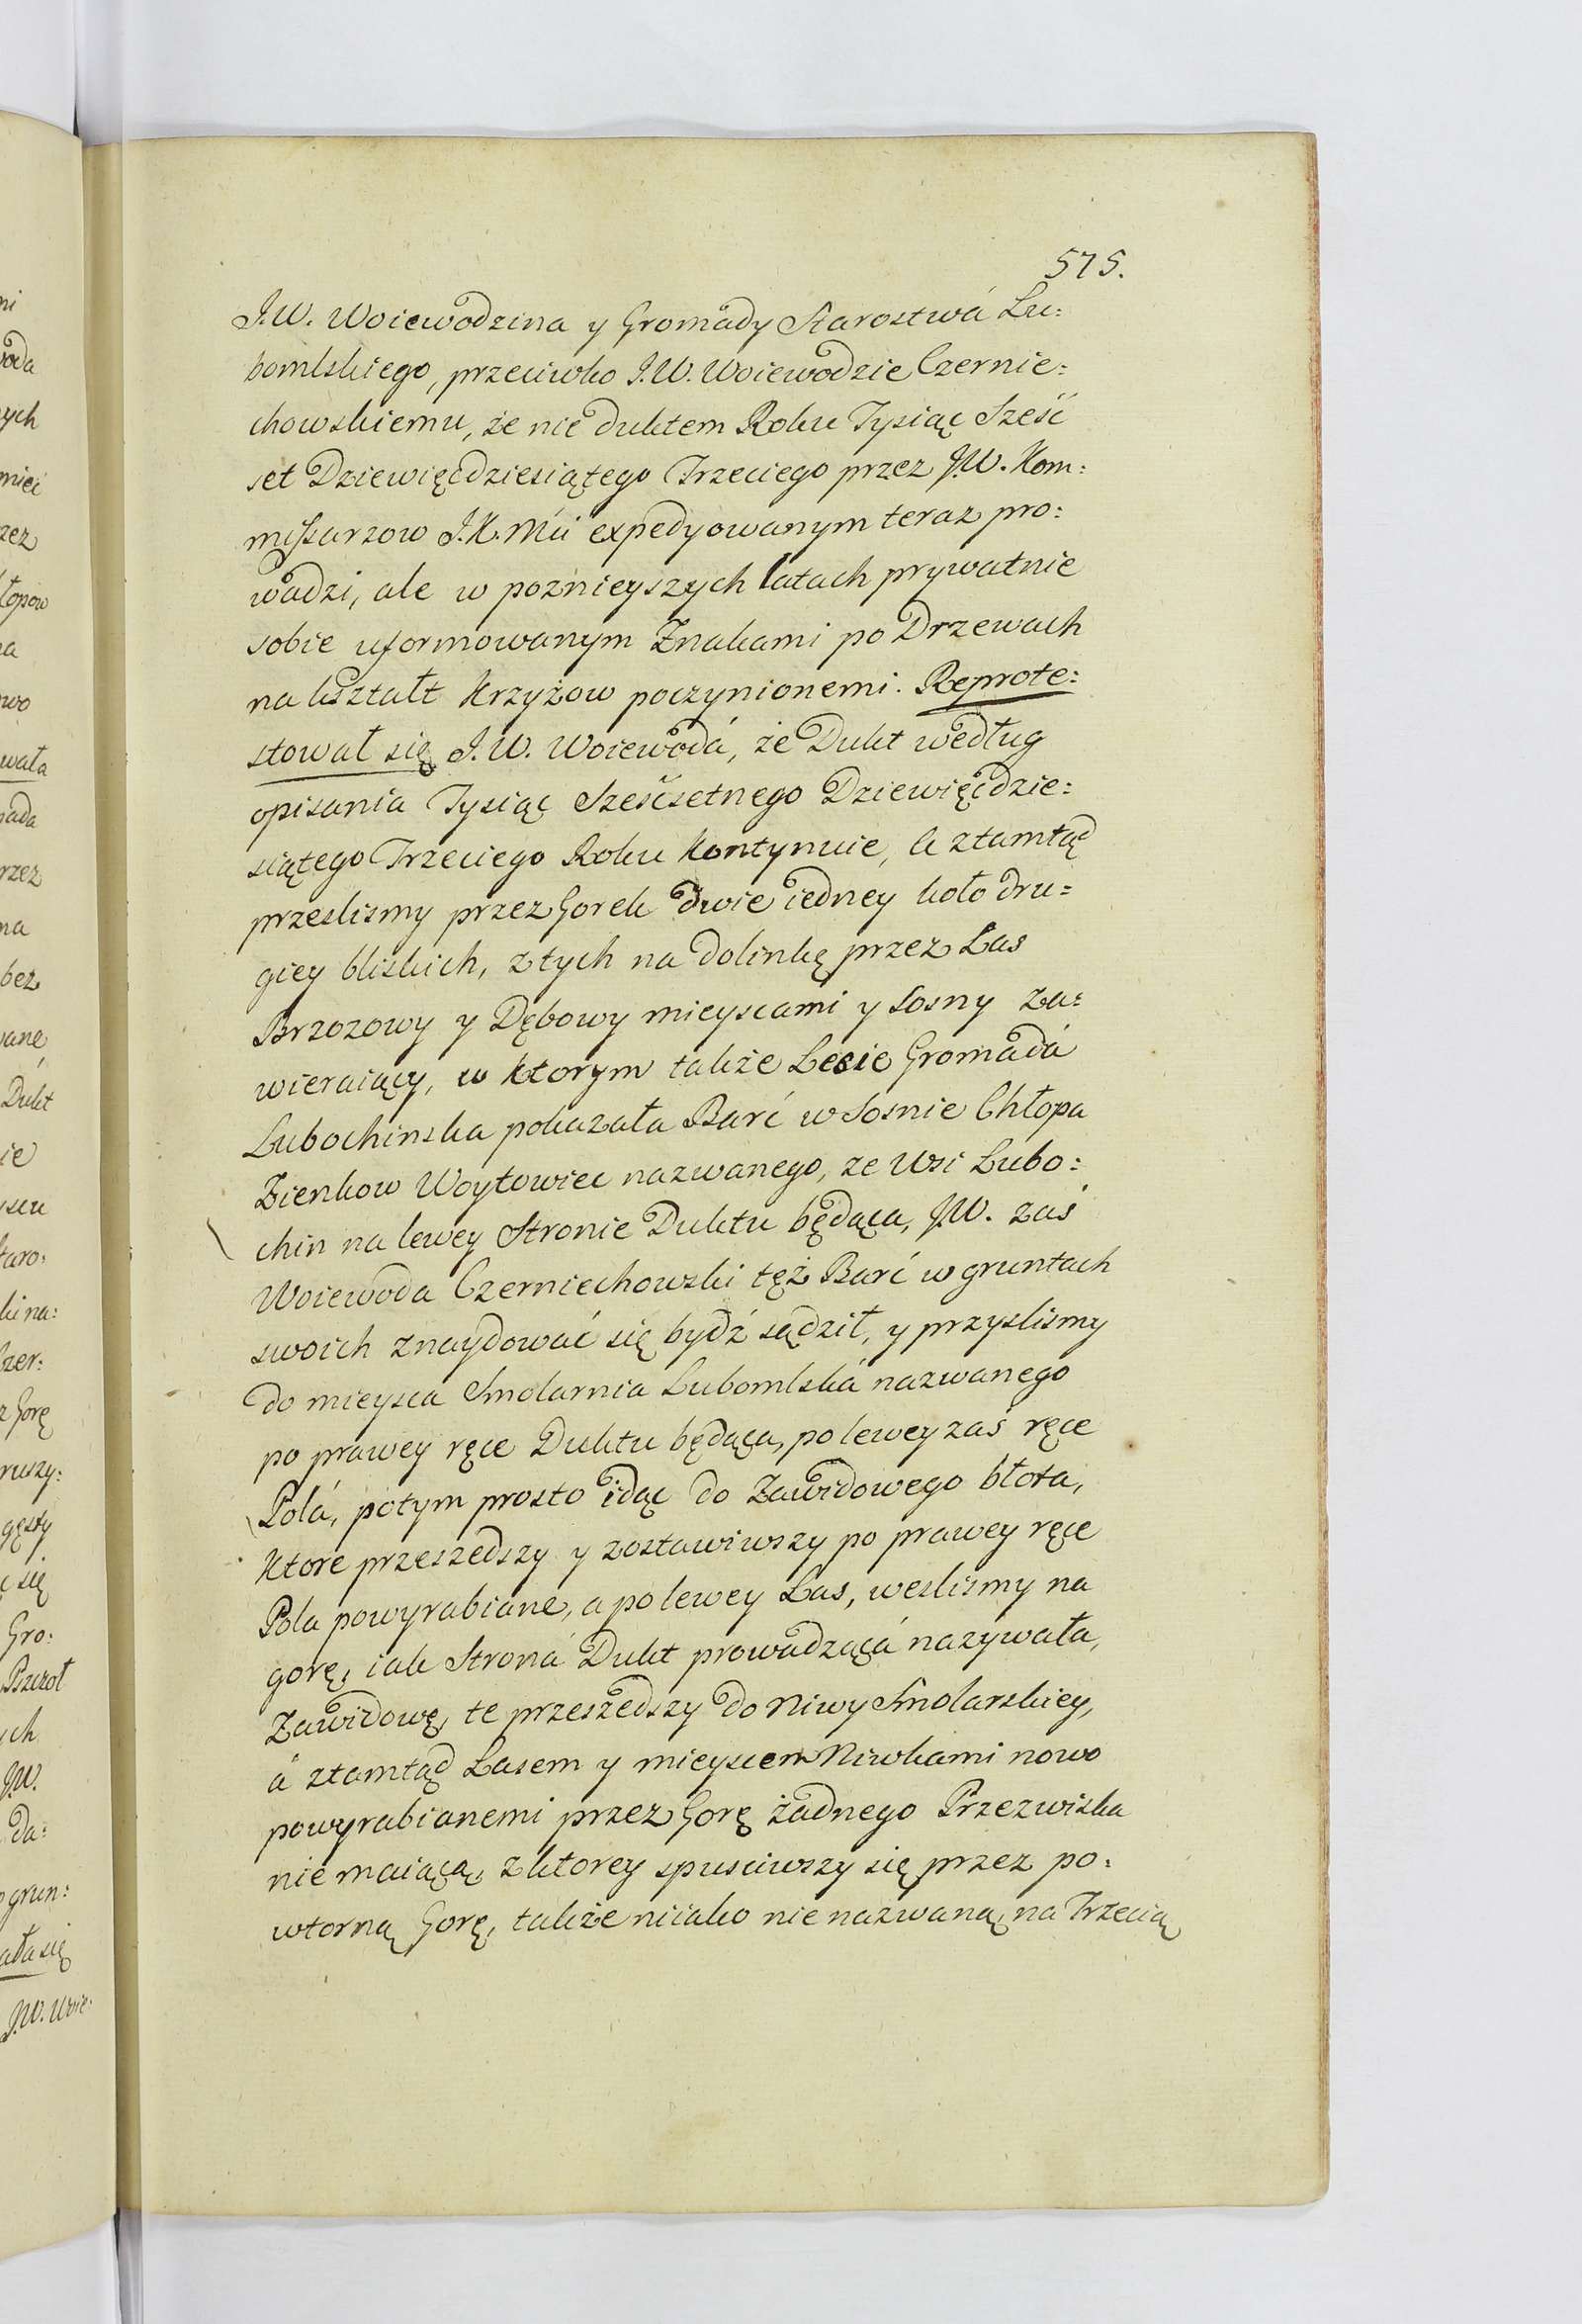 575.
J.W. Woiewodzina y Gromady Starostwá Lu:
bomlskiego, przeciwko J.W. Woiewodzie Czernie:
chowskiemu, że nie duktem Roku Tysiąc Sześć
set Dziewięćdziesiątego Trzeciego przez J.W. Kom:
missarzow J.K.Mći expedyowanym teraz pro:
wadzi, ale w poznieyszych latach prywatnie
sobie uformowanym Znakami po Drzewach
na kształt Krzyżow poczynionemi. Reprote:
stował się J.W. Woiewodá, że Dukt według
opisania Tysiąc Sześćsetnego Dziewięćdzie:
siątego Trzeciego Roku Kontynuie, a ztamtąd
przeslismy przez Gorek dwie iedney koło dru:
giey bliskich, z tych na dolinkę przez Las
Brzozowy y Dębowy mieyscami y Sosny za:
wieraiący, w Ktorym także Lesie Gromadá
Lubochinska pokazała Barć w Sosnie Chłopa
Zienkow Woytowiec nazwanego, ze Wsi Lubo:
chin na lewey Stronie Duktu będąca, J.W. zaś
Woiewoda Czerniechowski tęż Barć w gruntach
swoich znaydować się bydź sądził, y przyslismy
do mieysca Smolarnia Lubomlská nazwanego
po prawey ręce Duktu będąca, po lewey zaś ręce
Polá, potym prosto idąc do Zawidowego błota,
Ktore przeszedszy y zostawiwszy po prawey ręce
Pola powyrabiane, a po lewey Las, weslismy na
gorę, iak Stroná Dukt prowadzącá nazywała,
Zawidowę, te przeszedszy do Niwy Smolarskiey,
á ztamtąd Lasem y mieyscem Niwkami nowo
powyrabianemi przez Gorę żadnego Przezwiska
nie maiącą, z ktorey spusciwszy się przez po:
wtorną Gorę, także niiako nie nazwaną na Trzecią